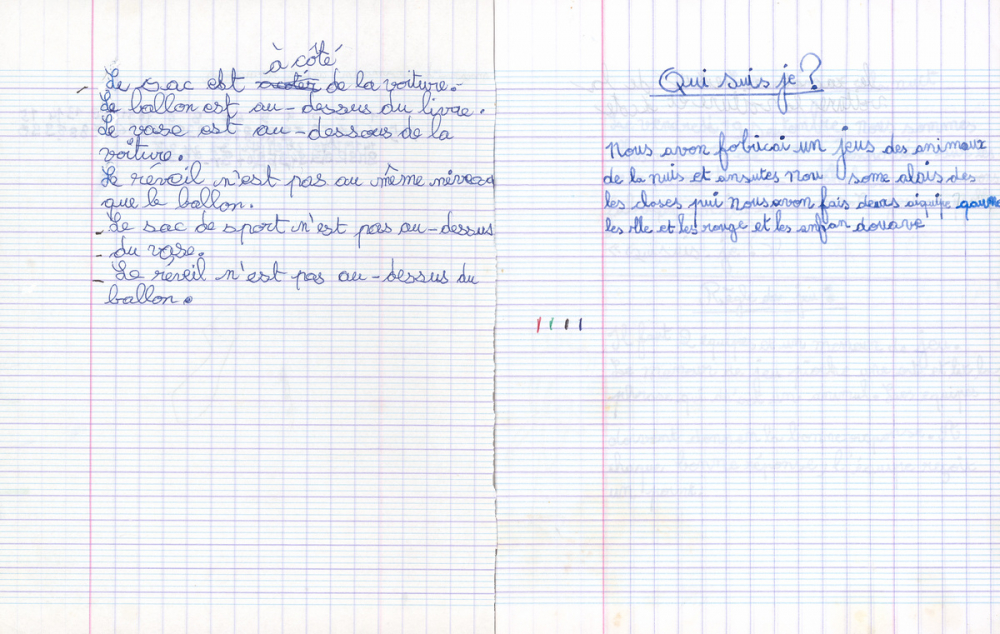 à côté
- Le sac est de la voiture.
Le ballon est au-dessus du livre.
Le vase est au-dessous de la
voiture.
Le réveil n'est pas au même niveau
que le ballon.
- Le sac de sport n'est pas au-dessus
- du vase.
- Le réveil n'est pas au-dessus du
ballon.
Qui suis je?
nous avon fobricai un jeus des animaux
de la nuis et ansutes nou some alais des
les closes pui nous avon fais deus aiquipe
les rlle et les rouge et les anfan douave